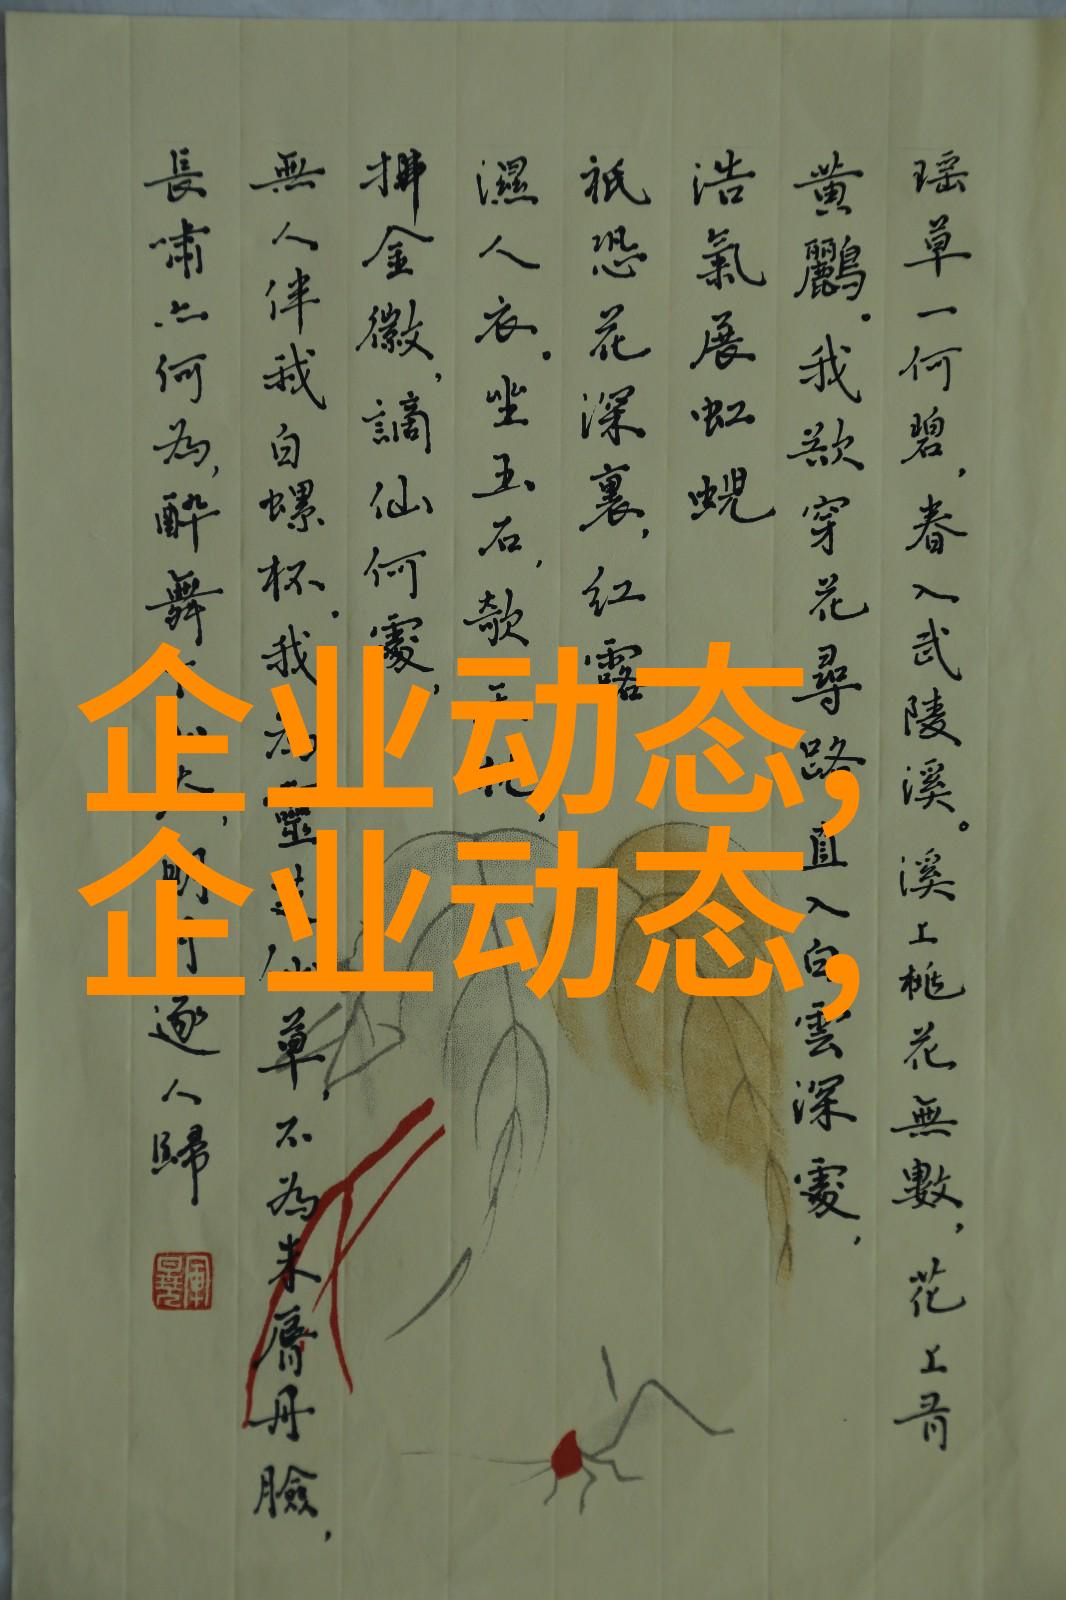 瑶草一何碧，春入武陵溪。溪上桃花無數，花上有
黄鸝。我欲穿花尋路直入白雲深處，
浩氣展虹蜺
祇恐花深裏，紅露
濕人衣。坐玉石，欹
拂金徽，謫仙何處，
無人伴我白螺杯。我為靈芝仙草，不為朱脣丹臉，
長嘯亦何為，醉舞下山去，明月逐人歸
企业动态,
企业动态,